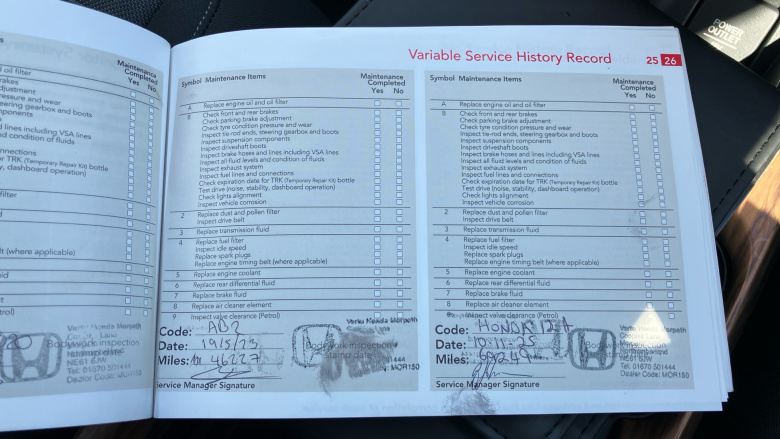 Variable Service History Record 25 26
POWER
OUTLET
oil filter
rakes
djustment
ressure and wear
teering gearbox and boots
ponents
d lines including VSA lines
nd condition of fluids
nnections
r TRK (Temporary Repair Kit) bottle
y, dashboard operation)
filter
lt (where applicable)
Maintenance
Completed
Yes No
Tel: 01670 501444
Dealer Code: MOR150
Symbol Maintenance Items Maintenance
Completed
Yes No
A Replace engine oil and oil filter
B Check front and rear brakes
Check parking brake adjustment
Check tyre condition pressure and wear
Inspect tie-rod ends, steering gearbox and boots
Inspect suspension components
Inspect driveshaft boots
Inspect brake hoses and lines including VSA lines
Inspect all fluid levels and condition of fluids
Inspect exhaust system
Inspect fuel lines and connections
Check expiration date for TRK (Temporary Repair Kit) bottle
Test drive (noise, stability, dashboard operation)
Check lights alignment
Inspect vehicle corrosion
2 Replace dust and pollen filter
Inspect drive belt
3 Replace transmission fluid
4 Replace fuel filter
Inspect idle speed
Replace spark plugs
Replace engine timing belt (where applicable)
5 Replace engine coolant
6 Replace rear differential fluid
7 Replace brake fluid
8 Replace air cleaner element
9 Inspect valve clearance (Petrol)
Code:
Date: 19/5/23
Miles: 46227
Vertu Honda Morpeth
Bodywork inspection
stamp date
Service Manager Signature
Symbol Maintenance Items Maintenance
Completed
Yes No
A Replace engine oil and oil filter
B Check front and rear brakes
Check parking brake adjustment
Check tyre condition pressure and wear
Inspect tie-rod ends, steering gearbox and boots
Inspect suspension components
Inspect driveshaft boots
Inspect brake hoses and lines including VSA lines
Inspect all fluid levels and condition of fluids
Inspect exhaust system
Inspect fuel lines and connections
Check expiration date for TRK (Temporary Repair Kit) bottle
Test drive (noise, stability, dashboard operation)
Check lights alignment
Inspect vehicle corrosion
2 Replace dust and pollen filter
Inspect drive belt
3 Replace transmission fluid
4 Replace fuel filter
Inspect idle speed
Replace spark plugs
Replace engine timing belt (where applicable)
5 Replace engine coolant
6 Replace rear differential fluid
7 Replace brake fluid
8 Replace air cleaner element
9 Inspect valve clearance (Petrol)
Code:
Date: 10-11-25
Miles:
Vertu Honda Morpeth
Northumberland
NE61 6JW
Tel: 01670 501444
Dealer Code: MOR150
Service Manager Signature